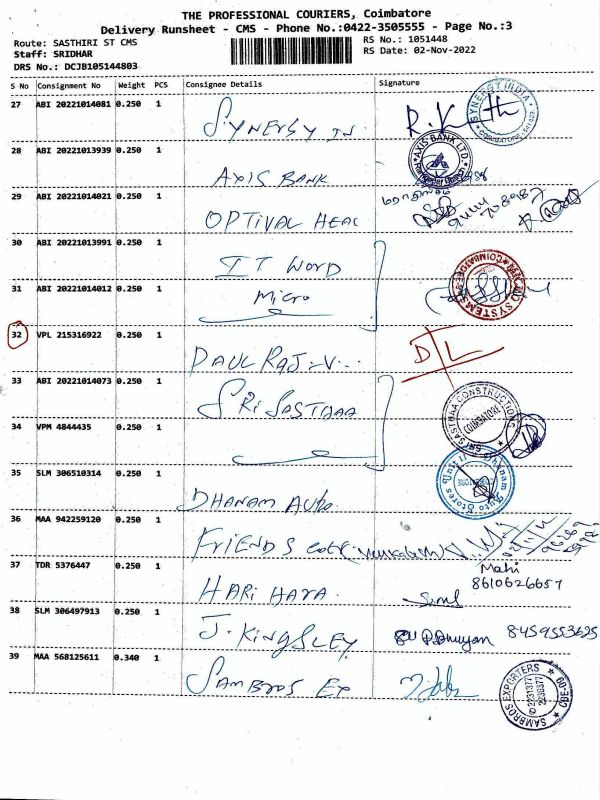 THE PROFESSIONAL COURIERS, Coimbatore
Delivery Runsheet - CMS - Phone No.:0422-3505555 - Page No.:3
Route: SASTHIRI ST CMS
RS No.: 1051448
Staff: SRIDHAR
RS Date: 02-Nov-2022
DRS No.: DCJB105144803
S No Consignment No Weight PCS Consignee Details Signature
27 ABI 20221014081 0.250 1 SYNERGY IN R.K
SYNERGY INDIA
28 ABI 20221013939 0.250 1 AXIS BANK
AXIS BANK LTD.
29 ABI 20221014021 0.250 1 OPTIVAL HEAL
30 ABI 20221013991 0.250 1 IT WORD
31 ABI 20221014012 0.250 1 MICRO
32 VPL 215316922 0.250 1 PAUL RAJ-V... D/L
33 ABI 20221014073 0.250 1 SRI SASTHAA
SRI SASTHAA CONSTRUCTIONS
COIMBATORE
34 VPM 4844435 0.250 1
35 SLM 306510314 0.250 1 DHANAM AUTO.
Dhanam Auto Stores
36 MAA 942259120 0.250 1 FRIENDS
37 TDR 5376447 0.250 1 HARI HARA. Mahi
8610626657
38 SLM 306497913 0.250 1 J. KINGSLEY 8459553625
39 MAA 568125611 0.340 1 SAMBROS EX
SAMBROS EXPORTERS